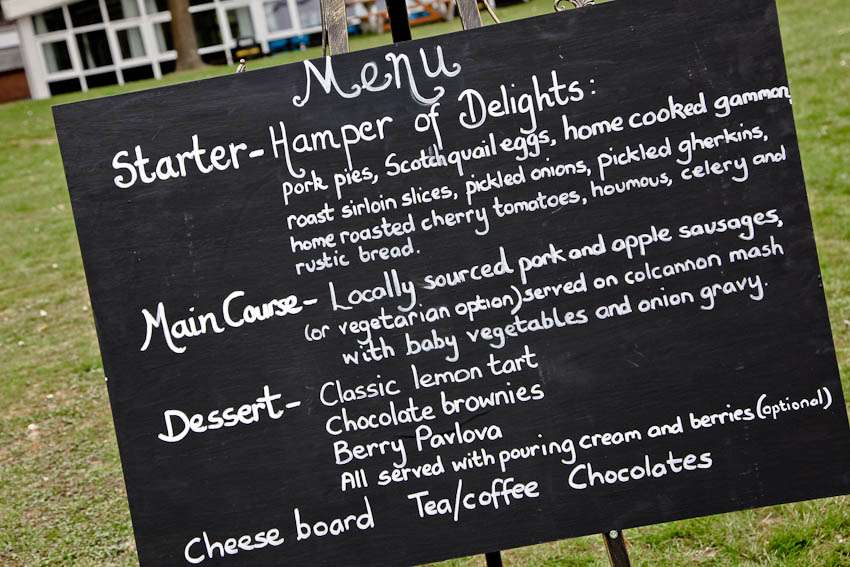 Menu
Starter - Hamper of Delights:
pork pies, Scotch quail eggs, home cooked gammon,
roast sirloin slices, pickled onions, pickled gherkins,
home roasted cherry tomatoes, houmous, celery and
rustic bread.
Main Course - Locally sourced pork and apple sausages,
(or vegetarian option) served on colcannon mash
with baby vegetables and onion gravy.
Dessert - Classic lemon tart
Chocolate brownies
Berry Pavlova
All served with pouring cream and berries (optional)
Cheese board Tea/coffee Chocolates